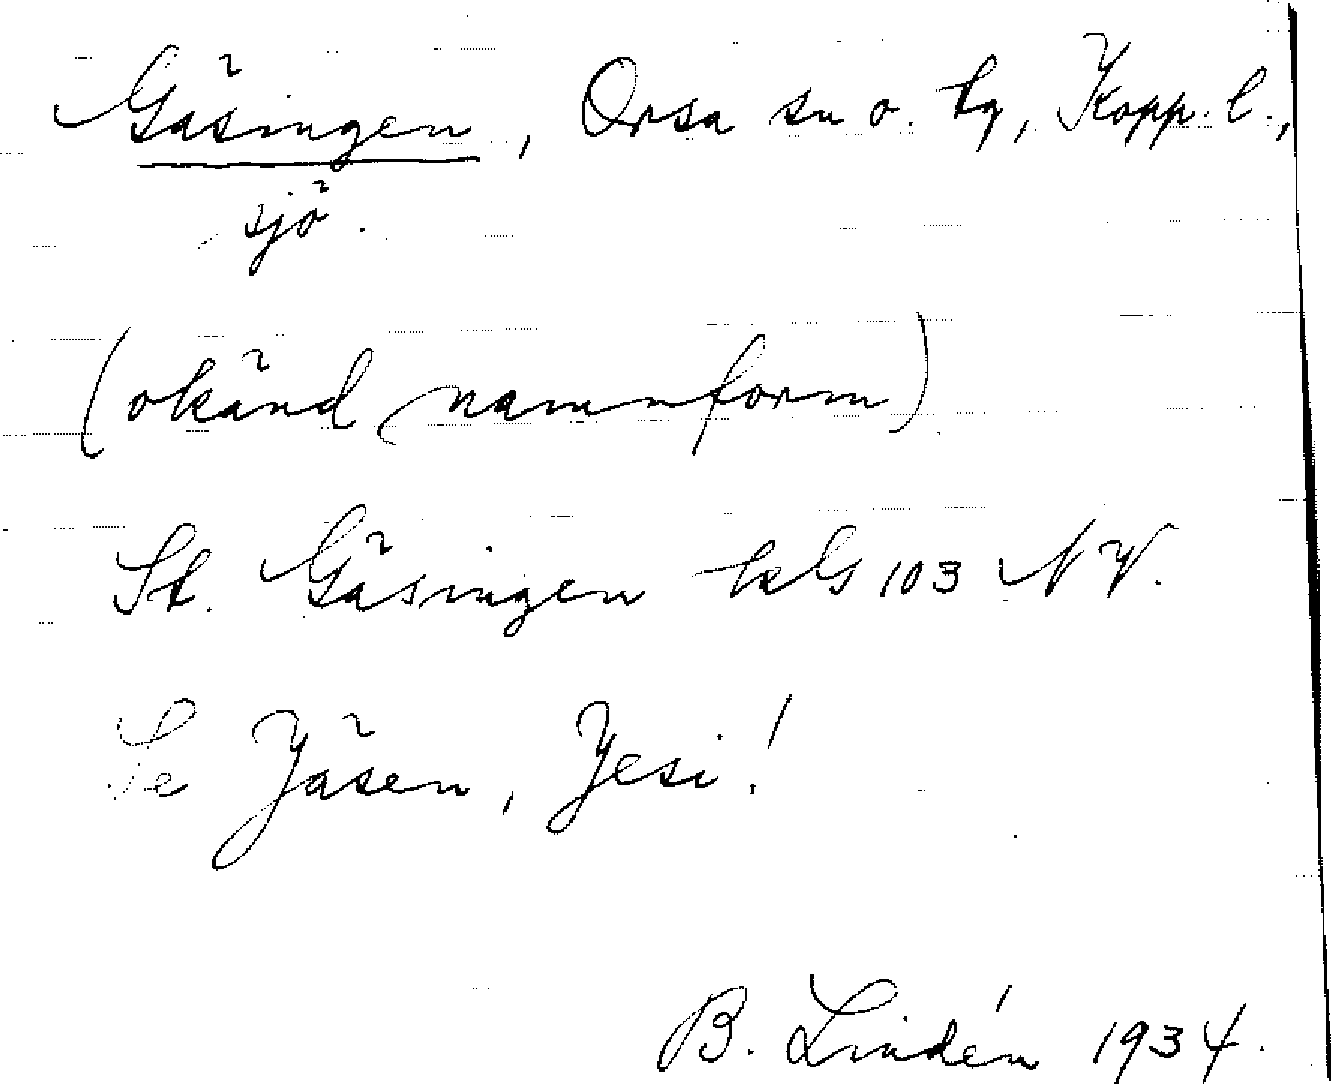 Gäsingen, Orsa sn o. tg, Kopp. l.,
sjö.
(okänd namnform)
St. Gäsingen kG 103 NV.
Se Jäsen, Jesi!
B. Lindén 1934.